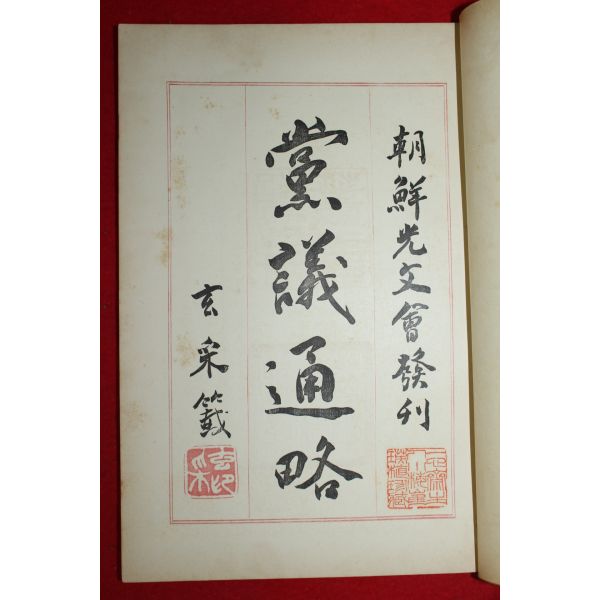 朝鮮光文會發刊
黨議通略
玄采籤
玄采印